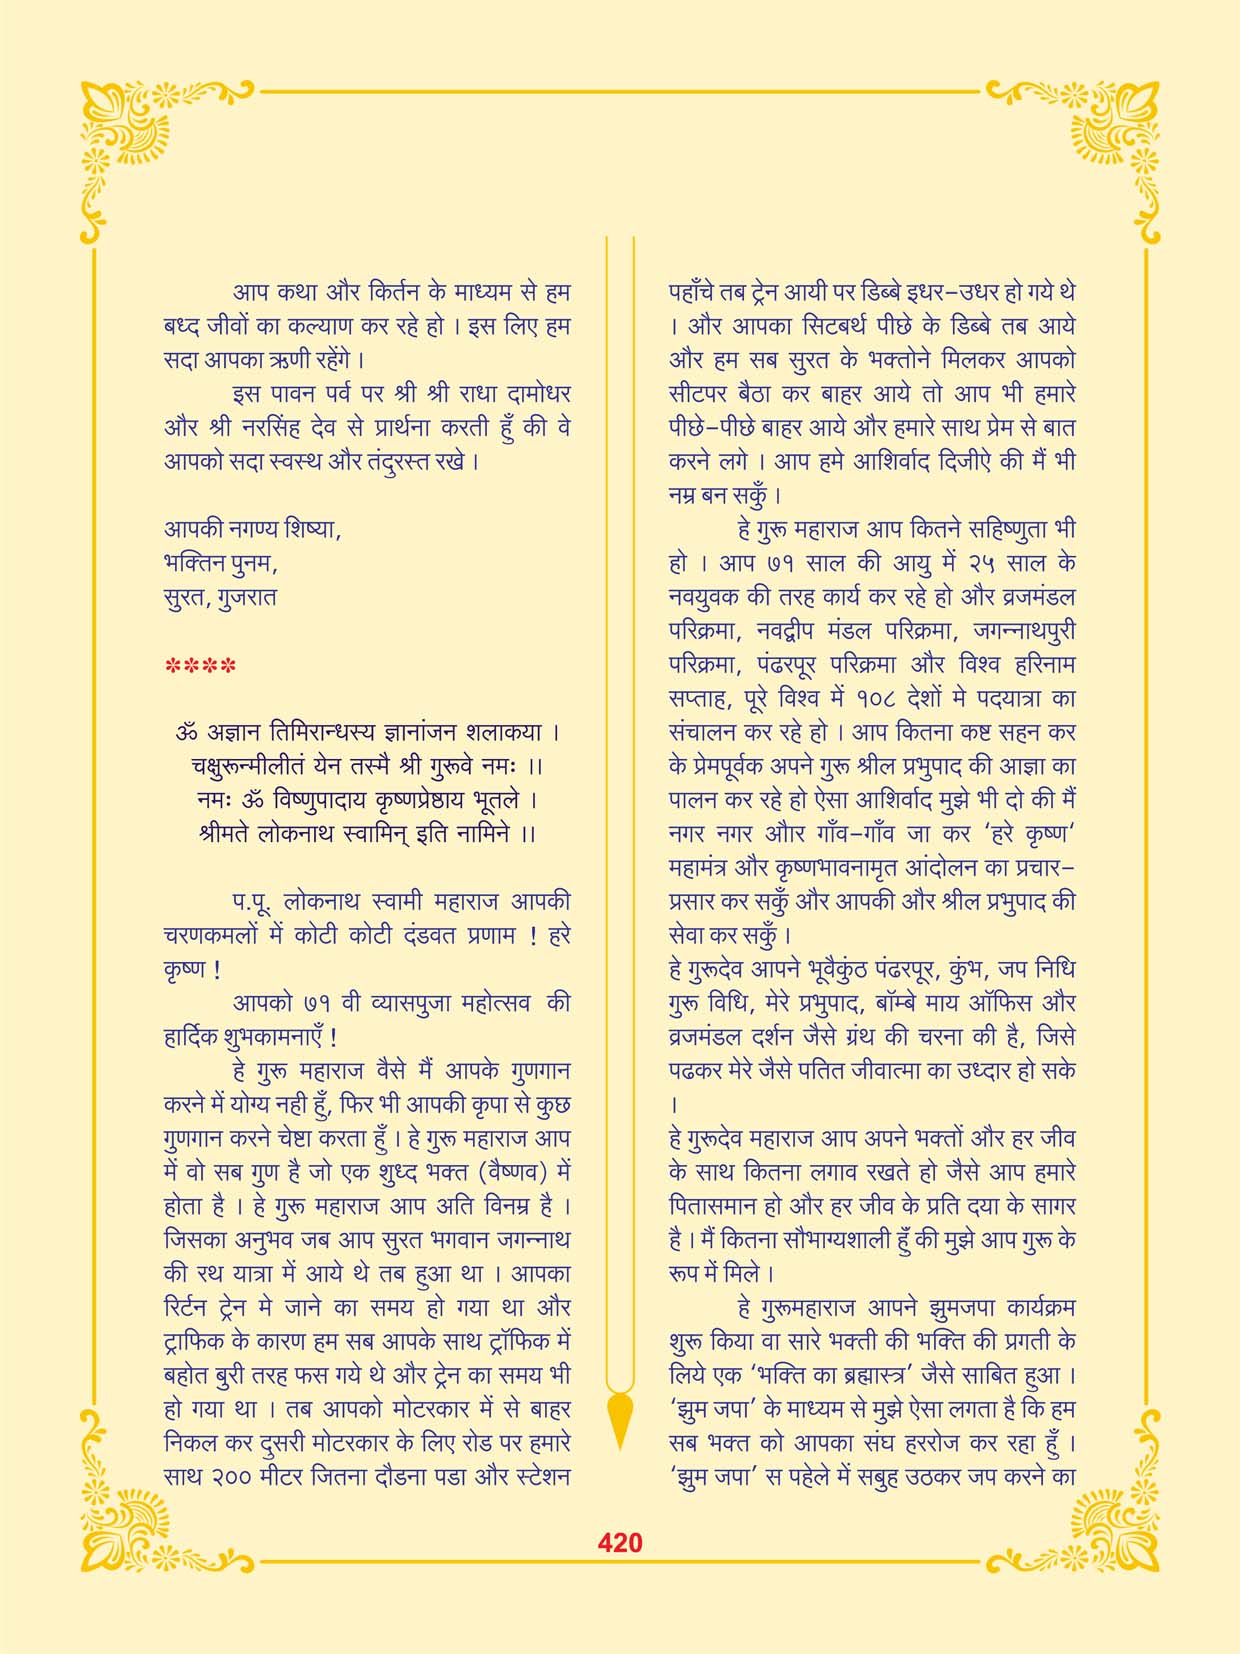 आप कथा और किर्तन के माध्यम से हम
बध्द जीवों का कल्याण कर रहे हो । इस लिए हम
सदा आपका ऋणी रहेंगे ।
इस पावन पर्व पर श्री श्री राधा दामोधर
और श्री नरसिंह देव से प्रार्थना करती हुँ की वे
आपको सदा स्वस्थ और तंदुरस्त रखे ।
आपकी नगण्य शिष्या,
भक्तिन पुनम,
सुरत, गुजरात
****
ॐ अज्ञान तिमिरान्धस्य ज्ञानांजन शलाकया ।
चक्षुरून्मीलीतं येन तस्मै श्री गुरूवे नमः ।।
नमः ॐ विष्णुपादाय कृष्णप्रेष्ठाय भूतले ।
श्रीमते लोकनाथ स्वामिन् इति नामिने ।।
प.पू. लोकनाथ स्वामी महाराज आपकी
चरणकमलों में कोटी कोटी दंडवत प्रणाम ! हरे
कृष्ण !
आपको ७१ वी व्यासपुजा महोत्सव की
हार्दिक शुभकामनाएँ !
हे गुरू महाराज वैसे मैं आपके गुणगान
करने में योग्य नही हुँ, फिर भी आपकी कृपा से कुछ
गुणगान करने चेष्टा करता हुँ । हे गुरू महाराज आप
में वो सब गुण है जो एक शुध्द भक्त (वैष्णव) में
होता है । हे गुरू महाराज आप अति विनम्र है ।
जिसका अनुभव जब आप सुरत भगवान जगन्नाथ
की रथ यात्रा में आये थे तब हुआ था । आपका
रिर्टन ट्रेन मे जाने का समय हो गया था और
ट्राफिक के कारण हम सब आपके साथ ट्रॉफिक में
बहोत बुरी तरह फस गये थे और ट्रेन का समय भी
हो गया था । तब आपको मोटरकार में से बाहर
निकल कर दुसरी मोटरकार के लिए रोड पर हमारे
साथ २०० मीटर जितना दौडना पडा और स्टेशन
पहाँचे तब ट्रेन आयी पर डिब्बे इधर-उधर हो गये थे
। और आपका सिटबर्थ पीछे के डिब्बे तब आये
और हम सब सुरत के भक्तोने मिलकर आपको
सीटपर बैठा कर बाहर आये तो आप भी हमारे
पीछे-पीछे बाहर आये और हमारे साथ प्रेम से बात
करने लगे । आप हमे आशिर्वाद दिजीऐ की मैं भी
नम्र बन सकुँ ।
हे गुरू महाराज आप कितने सहिष्णुता भी
हो । आप ७१ साल की आयु में २५ साल के
नवयुवक की तरह कार्य कर रहे हो और व्रजमंडल
परिक्रमा, नवद्वीप मंडल परिक्रमा, जगन्नाथपुरी
परिक्रमा, पंढरपूर परिक्रमा और विश्व हरिनाम
सप्ताह, पूरे विश्व में १०८ देशों मे पदयात्रा का
संचालन कर रहे हो । आप कितना कष्ट सहन कर
के प्रेमपूर्वक अपने गुरू श्रील प्रभुपाद की आज्ञा का
पालन कर रहे हो ऐसा आशिर्वाद मुझे भी दो की मैं
नगर नगर औार गाँव-गाँव जा कर ‘हरे कृष्ण‘
महामंत्र और कृष्णभावनामृत आंदोलन का प्रचार-
प्रसार कर सकुँ और आपकी और श्रील प्रभुपाद की
सेवा कर सकुँ ।
हे गुरूदेव आपने भूवैकुंठ पंढरपूर, कुंभ, जप निधि
गुरू विधि, मेरे प्रभुपाद, बॉम्बे माय ऑफिस और
व्रजमंडल दर्शन जैसे ग्रंथ की चरना की है, जिसे
पढकर मेरे जैसे पतित जीवात्मा का उध्दार हो सके
।
हे गुरूदेव महाराज आप अपने भक्तों और हर जीव
के साथ कितना लगाव रखते हो जैसे आप हमारे
पितासमान हो और हर जीव के प्रति दया के सागर
है । मैं कितना सौभाग्यशाली हुँ की मुझे आप गुरू के
रूप में मिले ।
हे गुरूमहाराज आपने झुमजपा कार्यक्रम
शुरू किया वा सारे भक्ती की भक्ति की प्रगती के
लिये एक ‘भक्ति का ब्रह्मास्त्र’ जैसे साबित हुआ ।
‘झुम जपा’ के माध्यम से मुझे ऐसा लगता है कि हम
सब भक्त को आपका संघ हररोज कर रहा हुँ ।
‘झुम जपा’ स पहेले में सबुह उठकर जप करने का
420